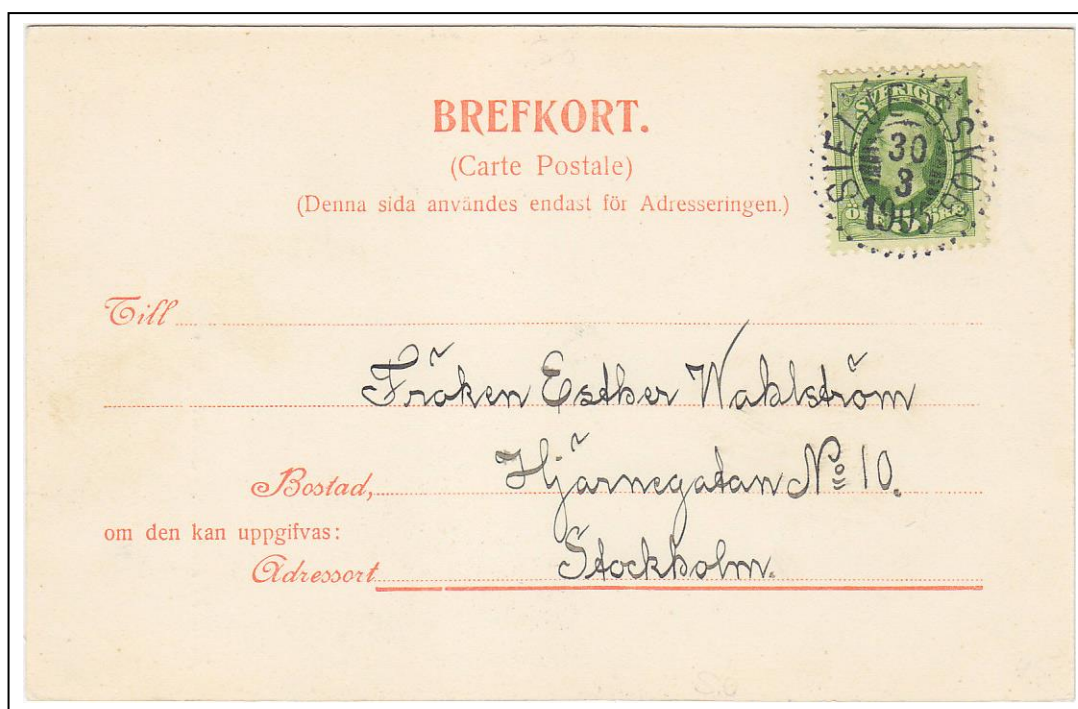 BREFKORT.
(Carte Postale)
(Denna sida användes endast för Adresseringen.)
SVERIGE
30
3
1905
Till
Fröken Esther Wahlström
Bostad, Hjärnegatan No 10.
om den kan uppgifvas:
Adressort Stockholm.